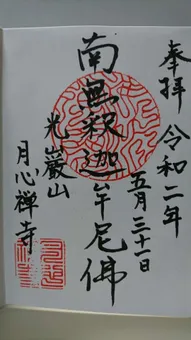 奉拝 令和二年
五月三十一日
南無釈迦牟尼佛
光巌山
月心禅寺